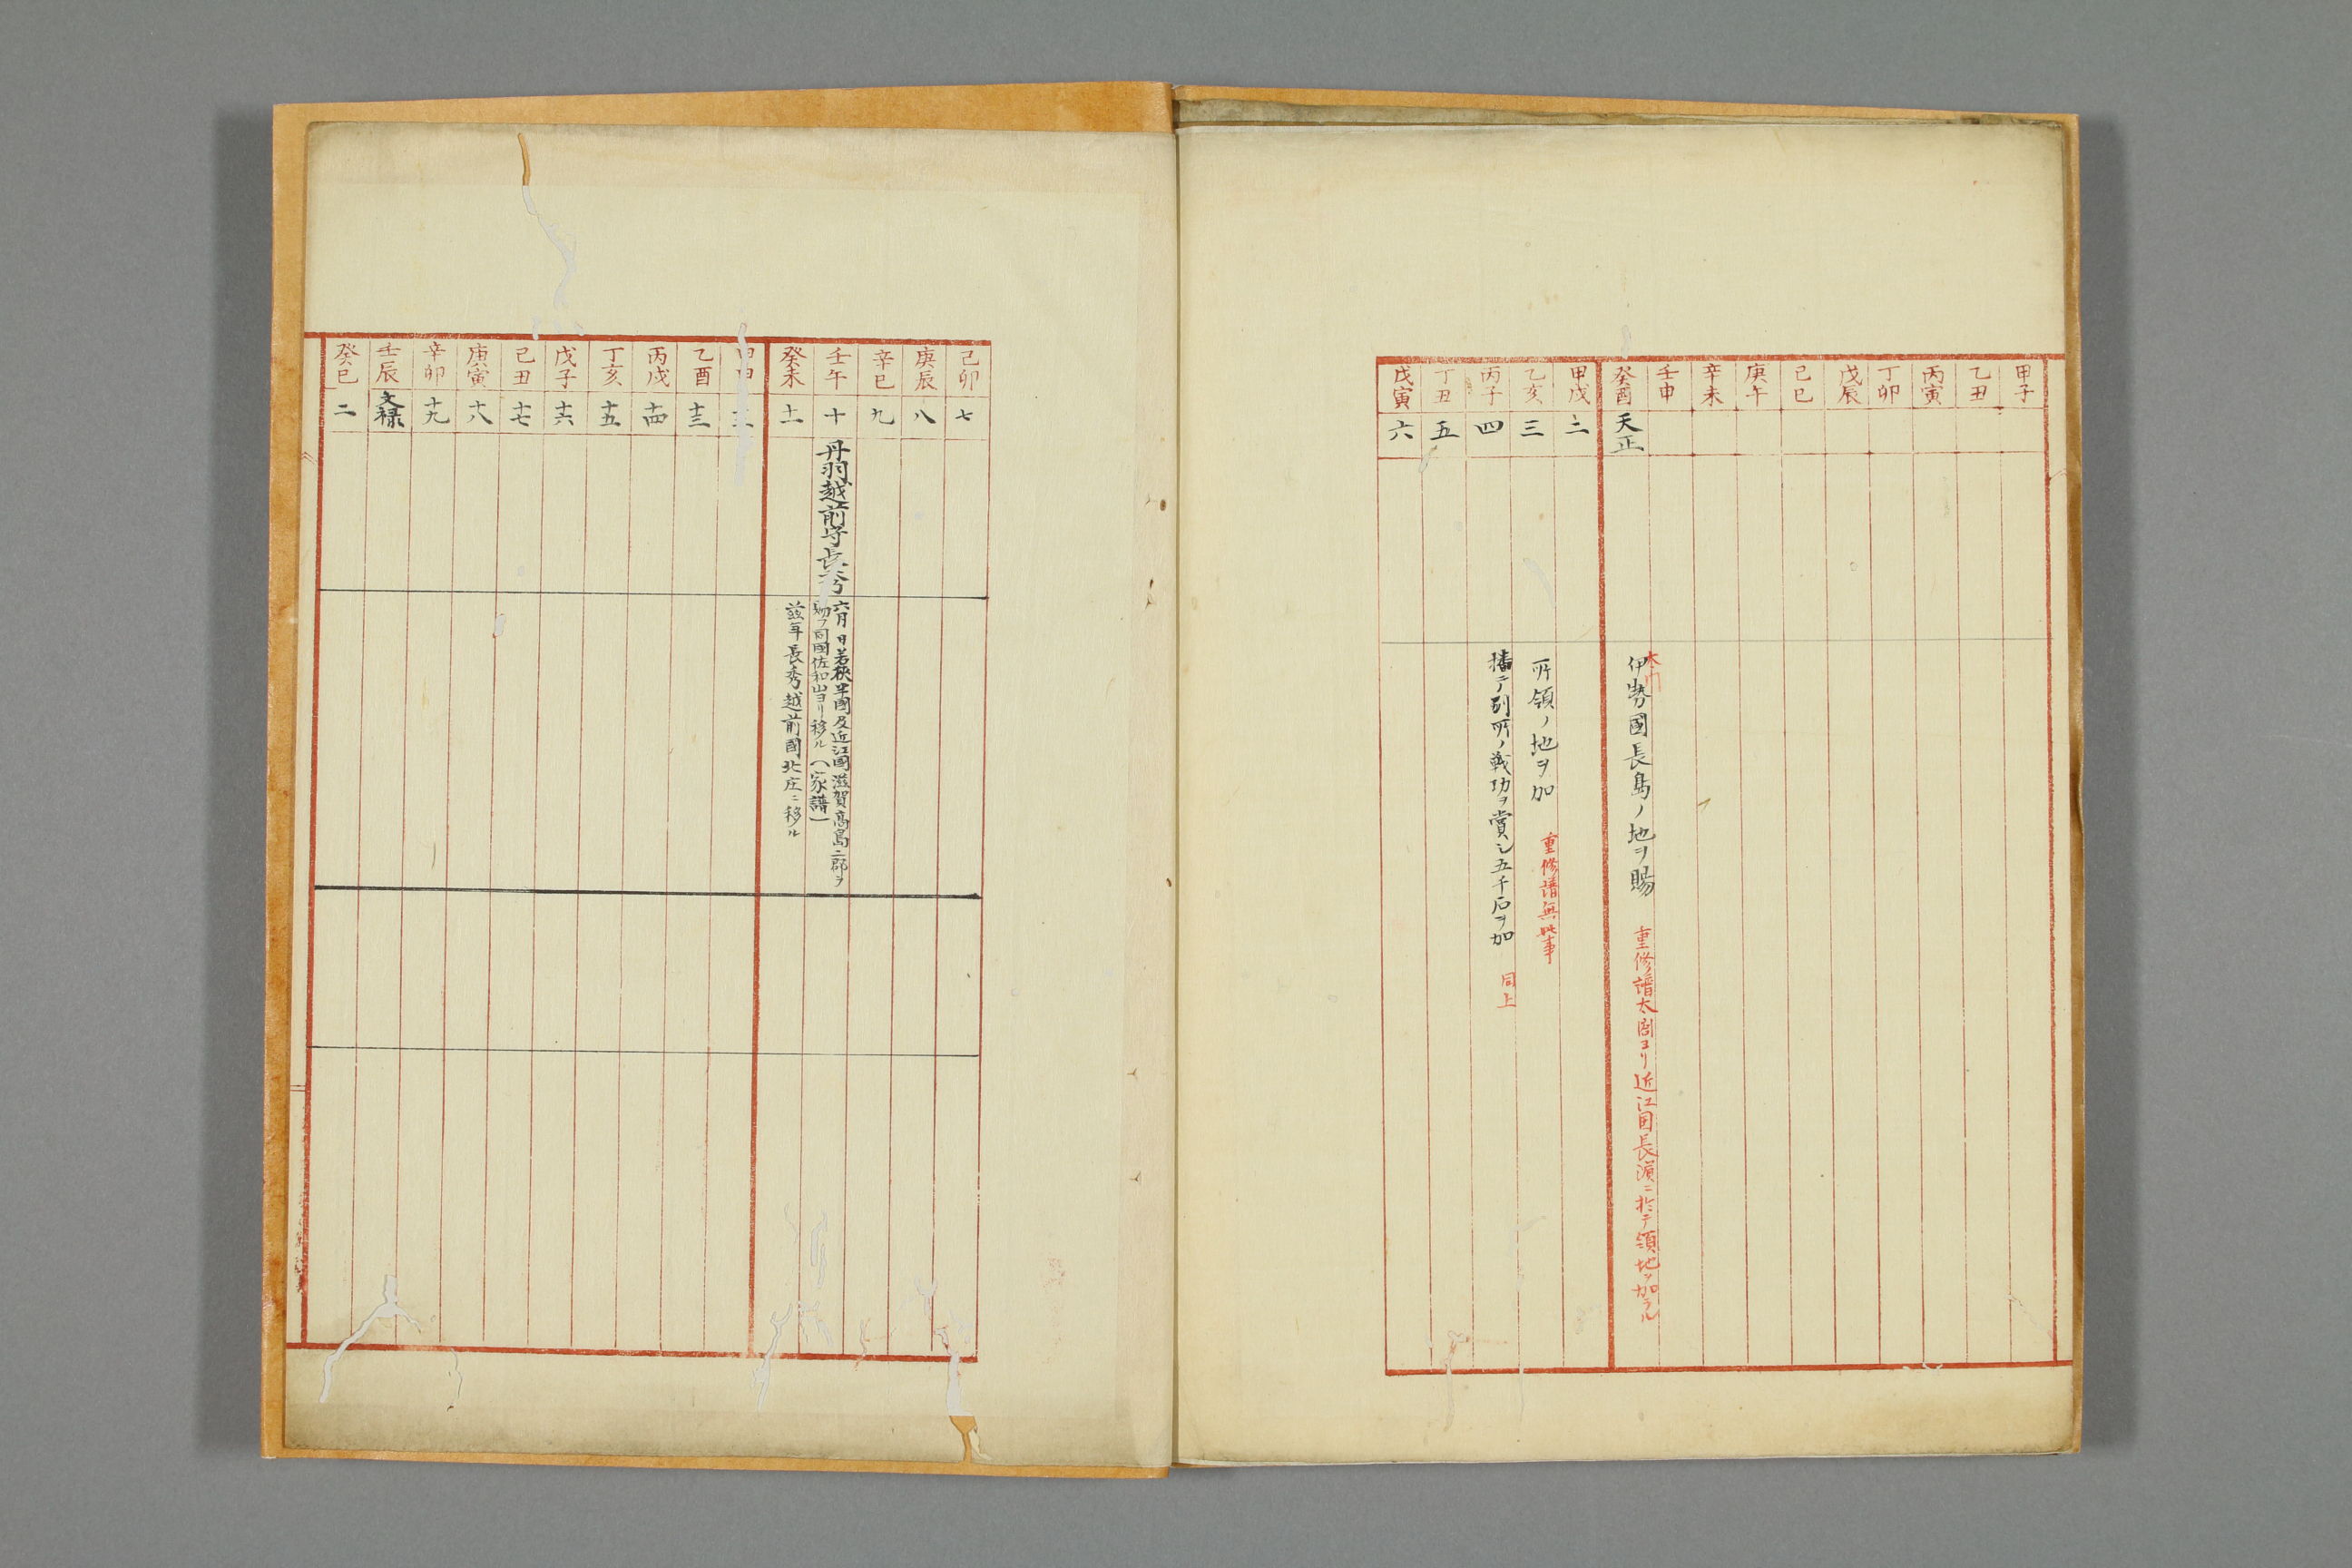 甲子
乙丑
丙寅
丁卯
戊辰
己巳
庚午
辛未
壬申
癸酉 天正
伊勢國長島ノ地ヲ賜 重修譜太閤ヨリ近江国長濵ニ於テ領地ヲ加ラル
甲戌 二
乙亥 三
所領ノ地ヲ加 重修譜無此事
丙子 四
播ニテ別所ノ戦功ヲ賞シ五千石ヲ加 同上
丁丑 五
戊寅 六
己卯 七
庚辰 八
辛巳 九
壬午 十 丹羽越前守長秀
六月 日若狹半國及近江國滋賀高島二郡ヲ
賜フ同國佐和山ヨリ移ル（家譜）
癸未 十一
茲年長秀越前國北庄ニ移ル
乙酉 十三
丙戌 十四
丁亥 十五
戊子 十六
己丑 十七
庚寅 十八
辛卯 十九
壬辰 文禄
癸巳 二